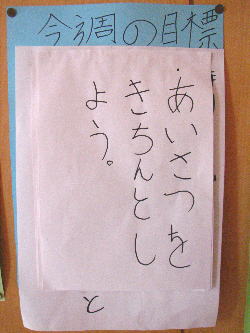 今週の目標
あいさつを
きちんとし
よう。
と